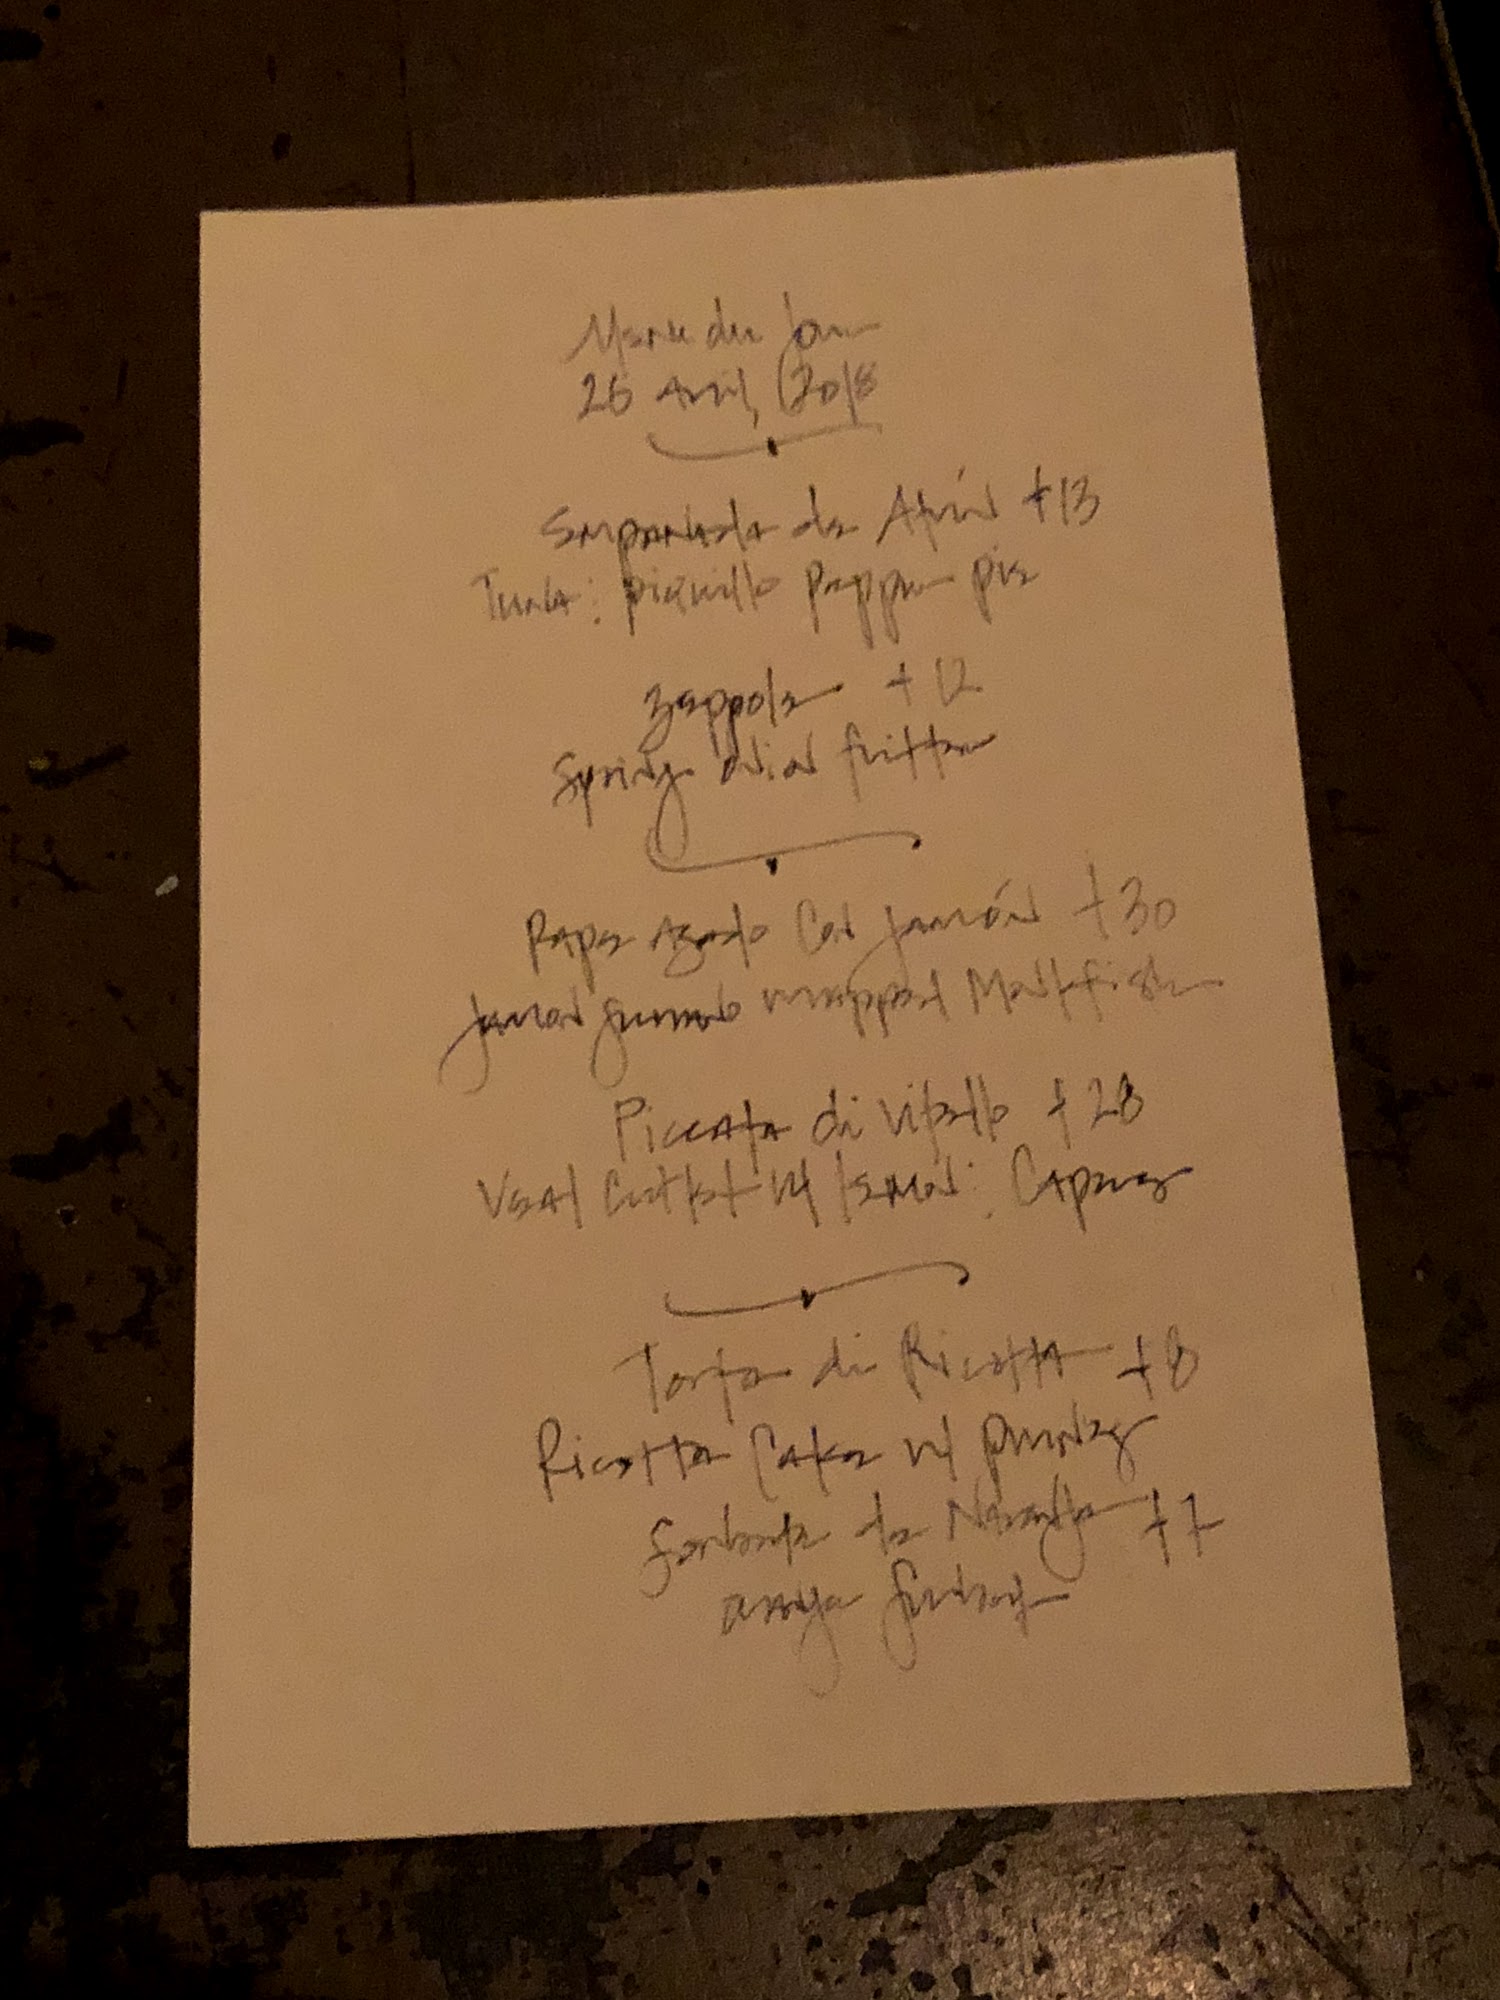 Menu du Jour
26 Avril, 2018
Empanada de Atún +13
Tuna : piquillo Pepper pie
Zeppole +12
Spring onion fritter
Rape Asado Con jamón +30
jamon serrano wrapped Monkfish
Piccata di Vitello +28
Veal Cutlet w/ lemon : Capers
Torta di Ricotta +8
Ricotta Cake w/
Sorbete de Naranja +7
orange Sorbet